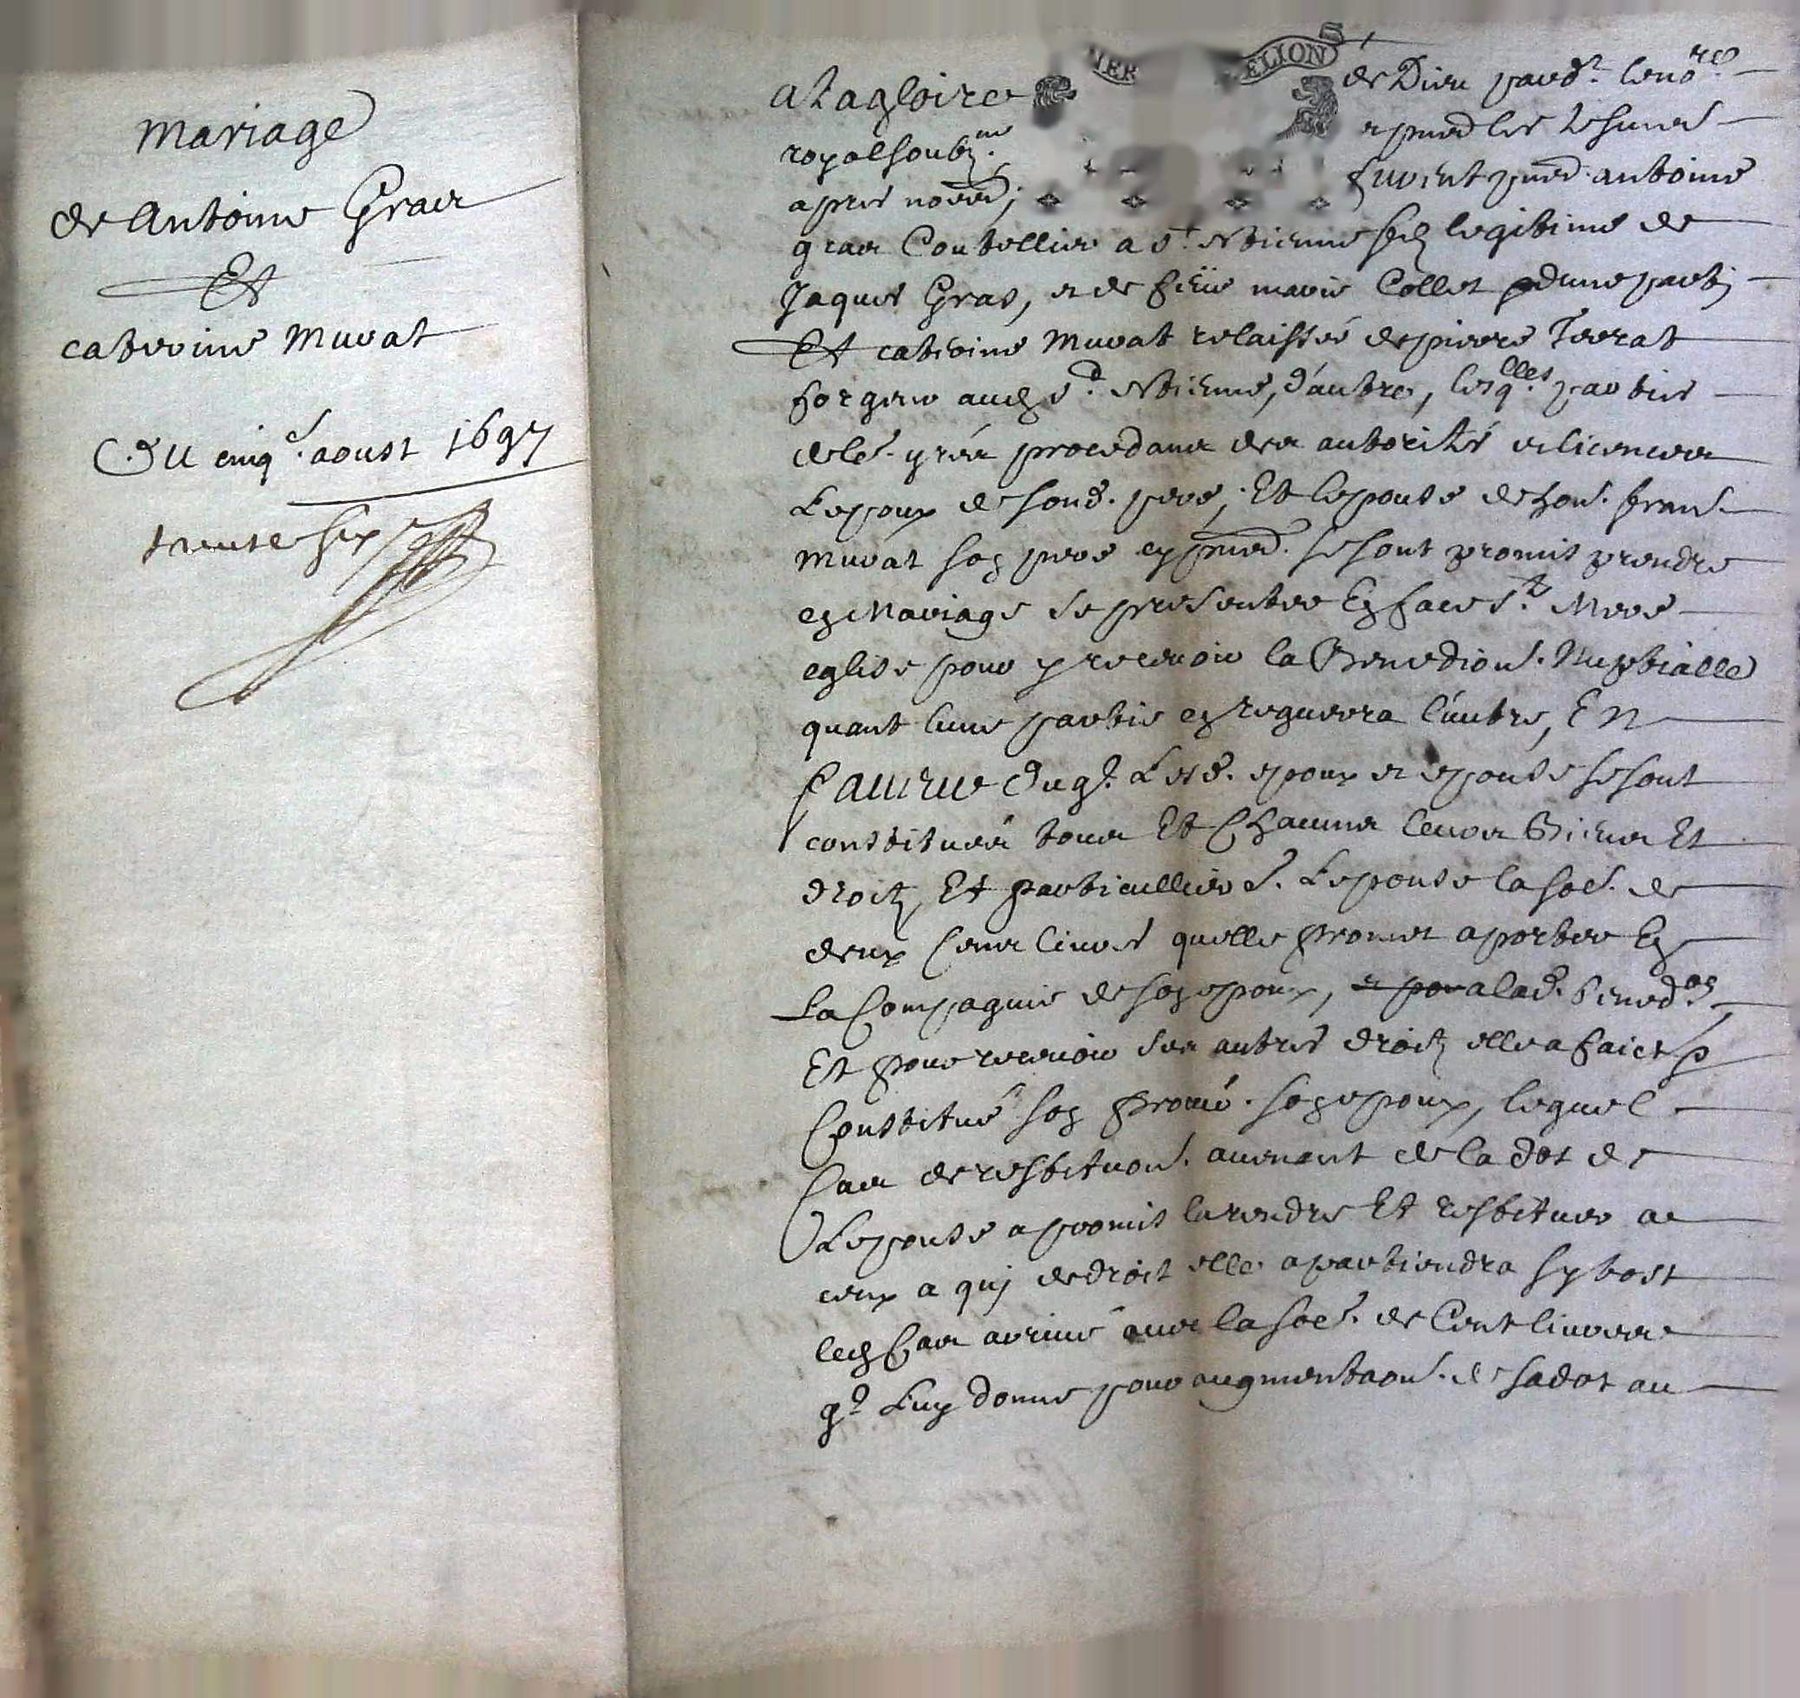 mariage
de Antoine Gras
Et
caterine Murat
Du cinq.e aoust 1697
trente six
A La gloire de Dieu pard.t le no.re
royal soubz.né et pnts les tesmes
apres nomes; furent pnts antoine
gras Coutellier a St Estienne filz legitime de
Jaques Gras, et de feüe marie Collet dune part
Et caterine Murat relaissée de pierre Terrat
forgeur aud sd Estienne, d'autre, lesq.lles parties
de lé. grés procedans des autorités et licences
Lepoux de sond. pere, Et lepouse de hon. frans.
Murat son pere ey pnt. se sont promis prendre
en Mariage se presenter En face ste Mere
eglise pour y recevoir la Benedion. Nuptialle
quant lune partie en requerra l'autre, En
faveur duq.l Lesd. epoux et epouse se sont
constitués tous Et Chacuns leurs Biens Et
droitz, Et particullier.t Lepouse la soe. de
deux Cens livres quelle promet aporter En
La Compagnie de son epoux, a lad. bened.on,
Et pour recevoir ses autres droitz elle a faict et
Constitué son procu. son epoux, lequel
Cas de restituon. avenant de la dot de
Lepouse a promis la rendre Et restituer a
ceux a qui de droit elle apartiendra sy tost
led Cas arrivé avec la soe. de Cent livres
q.l Luy donne pour augmentaon. de sa dot au